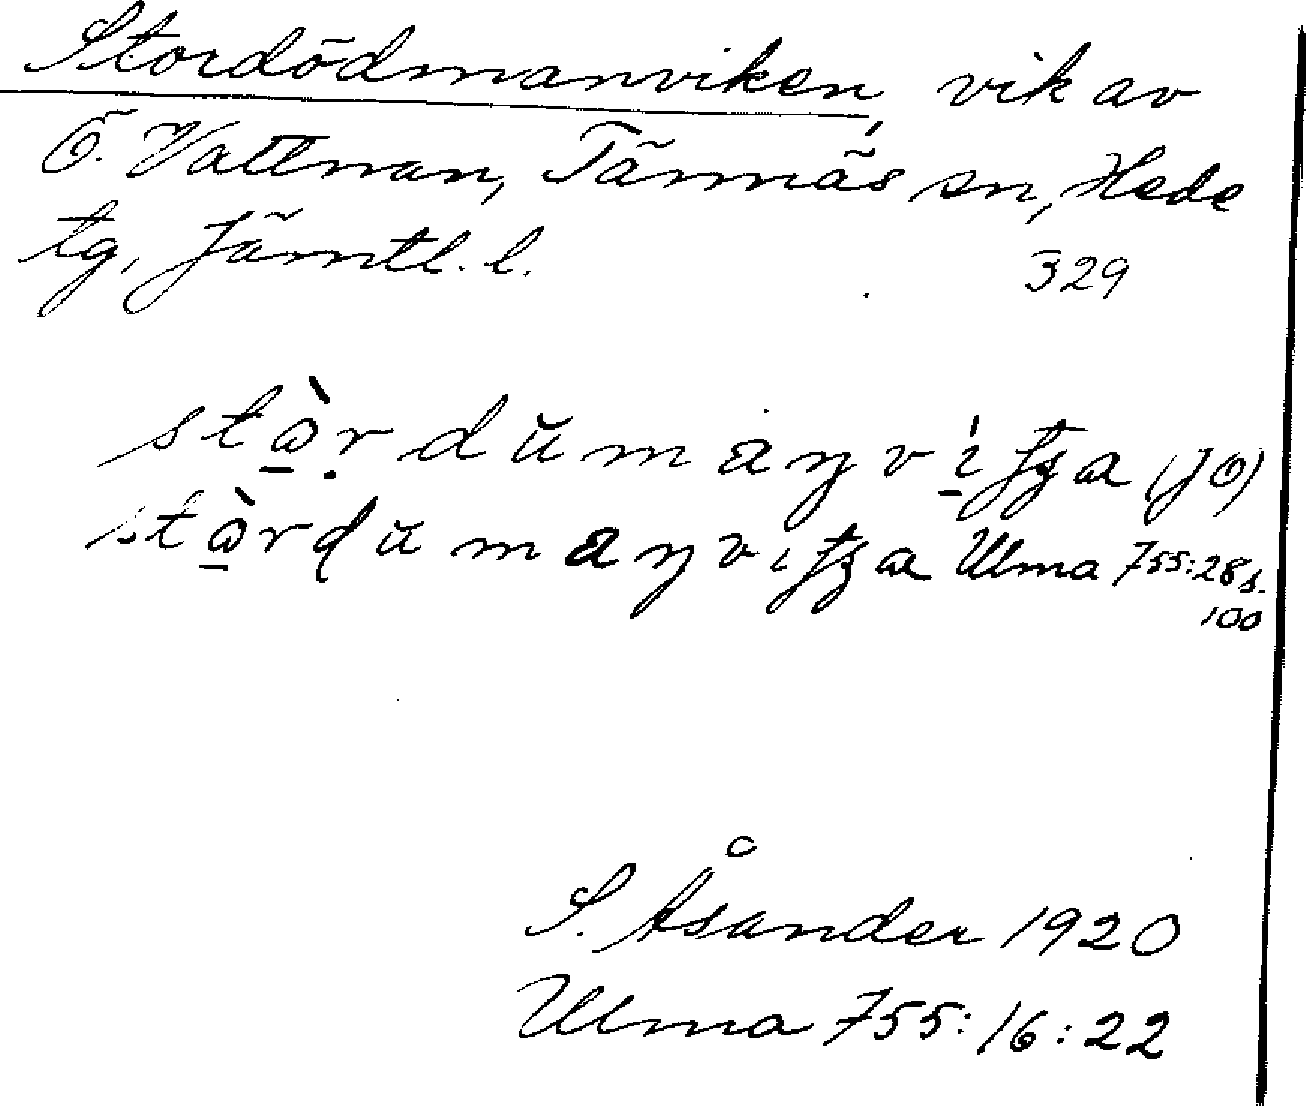 Stordödmanviken, vik av
Ö. Vattnan, Tännäs sn, Hede
tg, Jämtl. l. 329
(JO)
Ulma 755:28 s.
100
S. Åsander 1920
Ulma 755:16:22